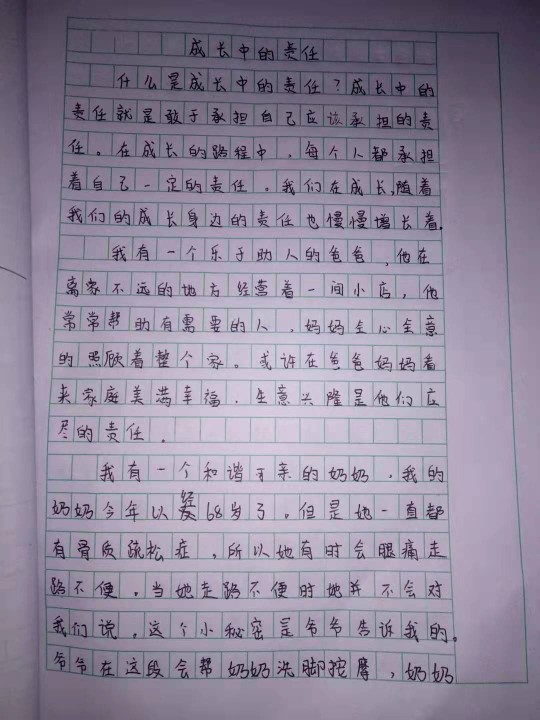 成长中的责任
什么是成长中的责任？成长中的
责任就是敢于承担自己应该承担的责
任。在成长的路程中，每个人都承担
着自己一定的责任。我们在成长,随着
我们的成长身边的责任也慢慢增长着.
我有一个乐于助人的爸爸，他在
离家不远的地方经营着一间小店，他
常常帮助有需要的人，妈妈全心全意
的照顾着整个家。或许在爸爸妈妈看
来家庭美满幸福，生意兴隆是他们应
尽的责任.
我有一个和谐可亲的奶奶，我的
奶奶今年以经68岁了。但是她一直都
有骨质疏松症，所以她有时会腿痛走
路不便，当她走路不便时她并不会对
我们说，这个小秘密是爷爷告诉我的。
爷爷在这段会帮奶奶洗脚按摩，奶奶